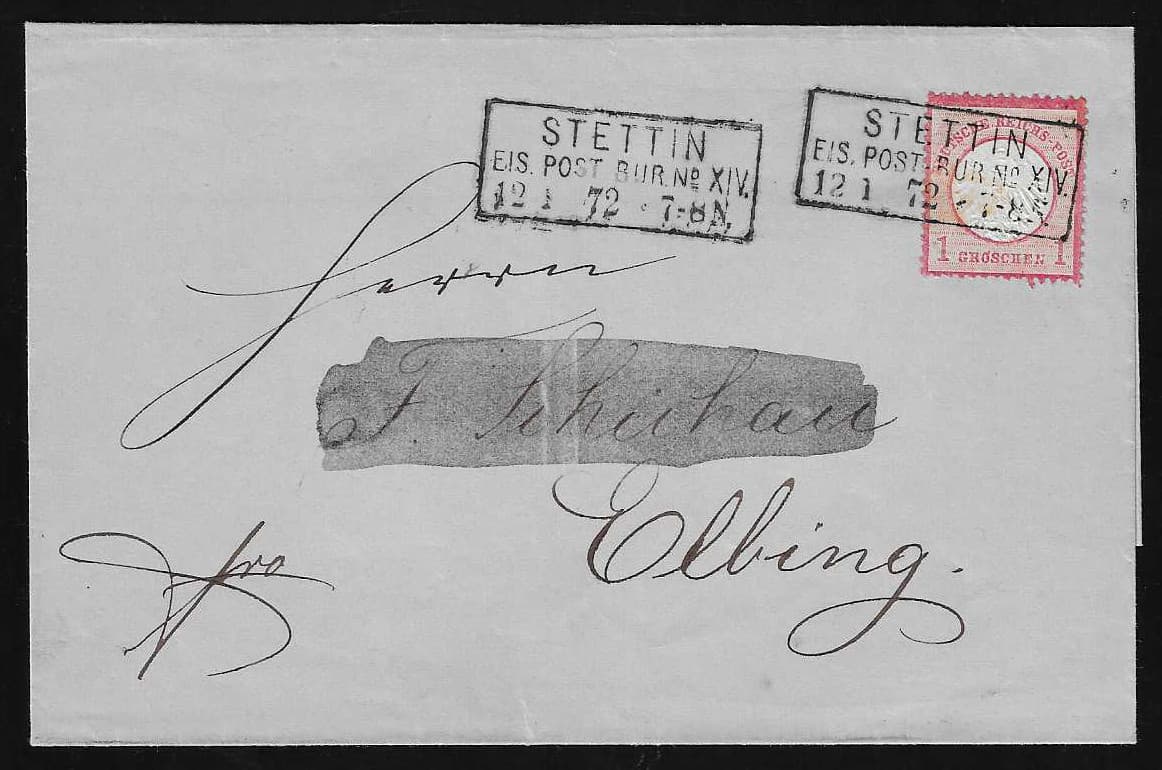 STETTIN
EIS. POST BUR. No XIV.
12 1 72 7-8N.
STETTIN
EIS. POST-BUR. No XIV.
12 1 72 7-8
DEUTSCHE REICHS-POST
1 GROSCHEN 1
Herrn
F. Schichau
Elbing.
fro